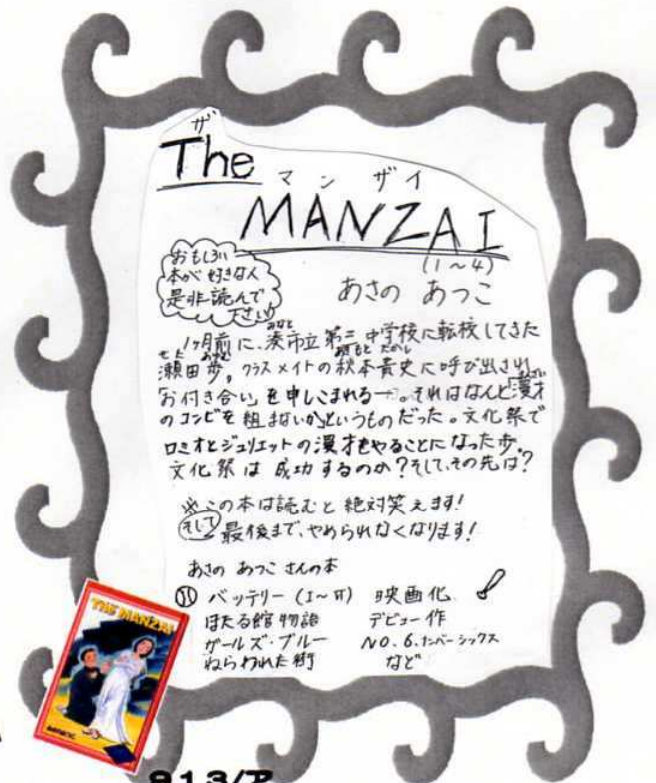 ザ
The
マンザイ
MANZAI
(1~4)
おもしろい
本が好きな人
是非読んで
下さい
あさの あつこ
みなと
1ヶ月前に、湊市立第二中学校に転校してきた
せた あゆむ あきもと たかし
瀬田歩。クラスメイトの秋本貴史に呼び出され、
まんざい
「お付き合い」を申しこまれる―。それはなんと漫才
のコンビを組まないかというものだった。文化祭で
ロミオとジュリエットの漫才をやることになった歩。
文化祭は成功するのか?そして、その先は?
※この本は読むと絶対笑えます!
そして 最後まで、やめられなくなります!
あさの あつこ さんの本
バッテリー (I~VI) 映画化
ほたる館物語 デビュー作
ガールズ・ブルー NO.6.ナンバーシックス
ねらわれた街 など
THE MANZAI
913/ア